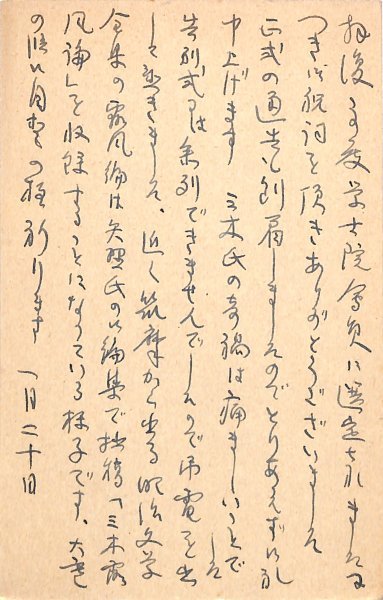 拝復 この度学士院会員に選定されましたに
つき御祝詞を頂きありがとうございました
正式の通告に到着しましたのでとりあえず御礼
申上げます 三木氏の奇禍は痛ましいことでした
告別式には参列できませんでしたので弔電を出
して置きました、近く筑摩から出る明治文学
全集の露風編は矢野氏の御編集で拙稿「三木露
風論」を収録することになっている様子です、大慶
の陰御自愛の程祈ります 一月二十日